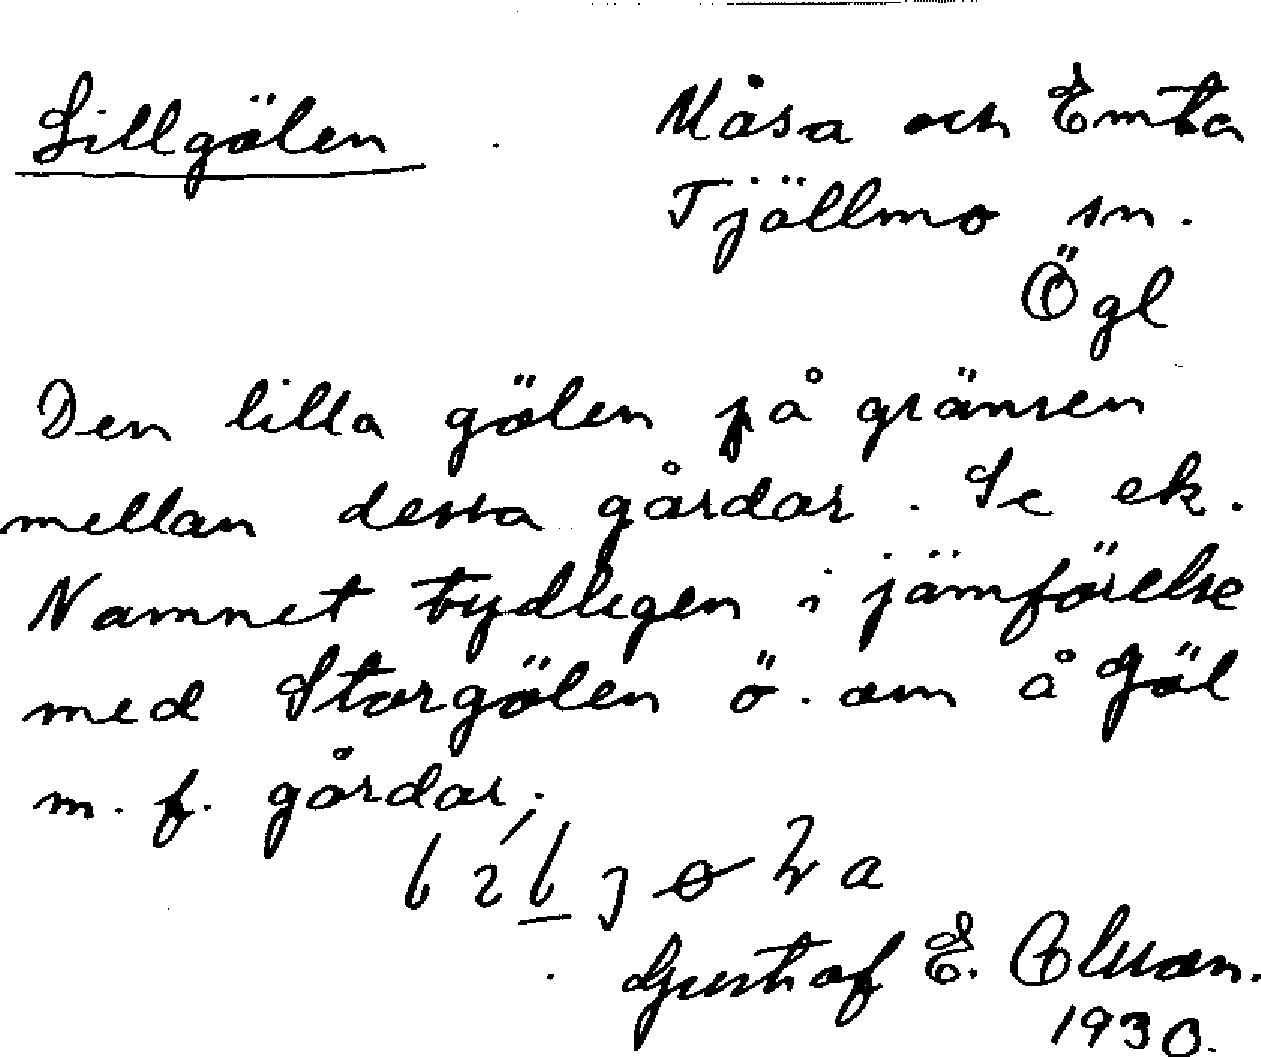 Lillgölen
Måsa och Emta
Tjällmo sn.
Ögl
Den lilla gölen på gränsen
mellan dessa gårdar. Se ek.
Namnet tydligen i jämförelse
med Storgölen ö. om å Göl
m. f. gårdar.
Gustaf E. Olsson.
1930.